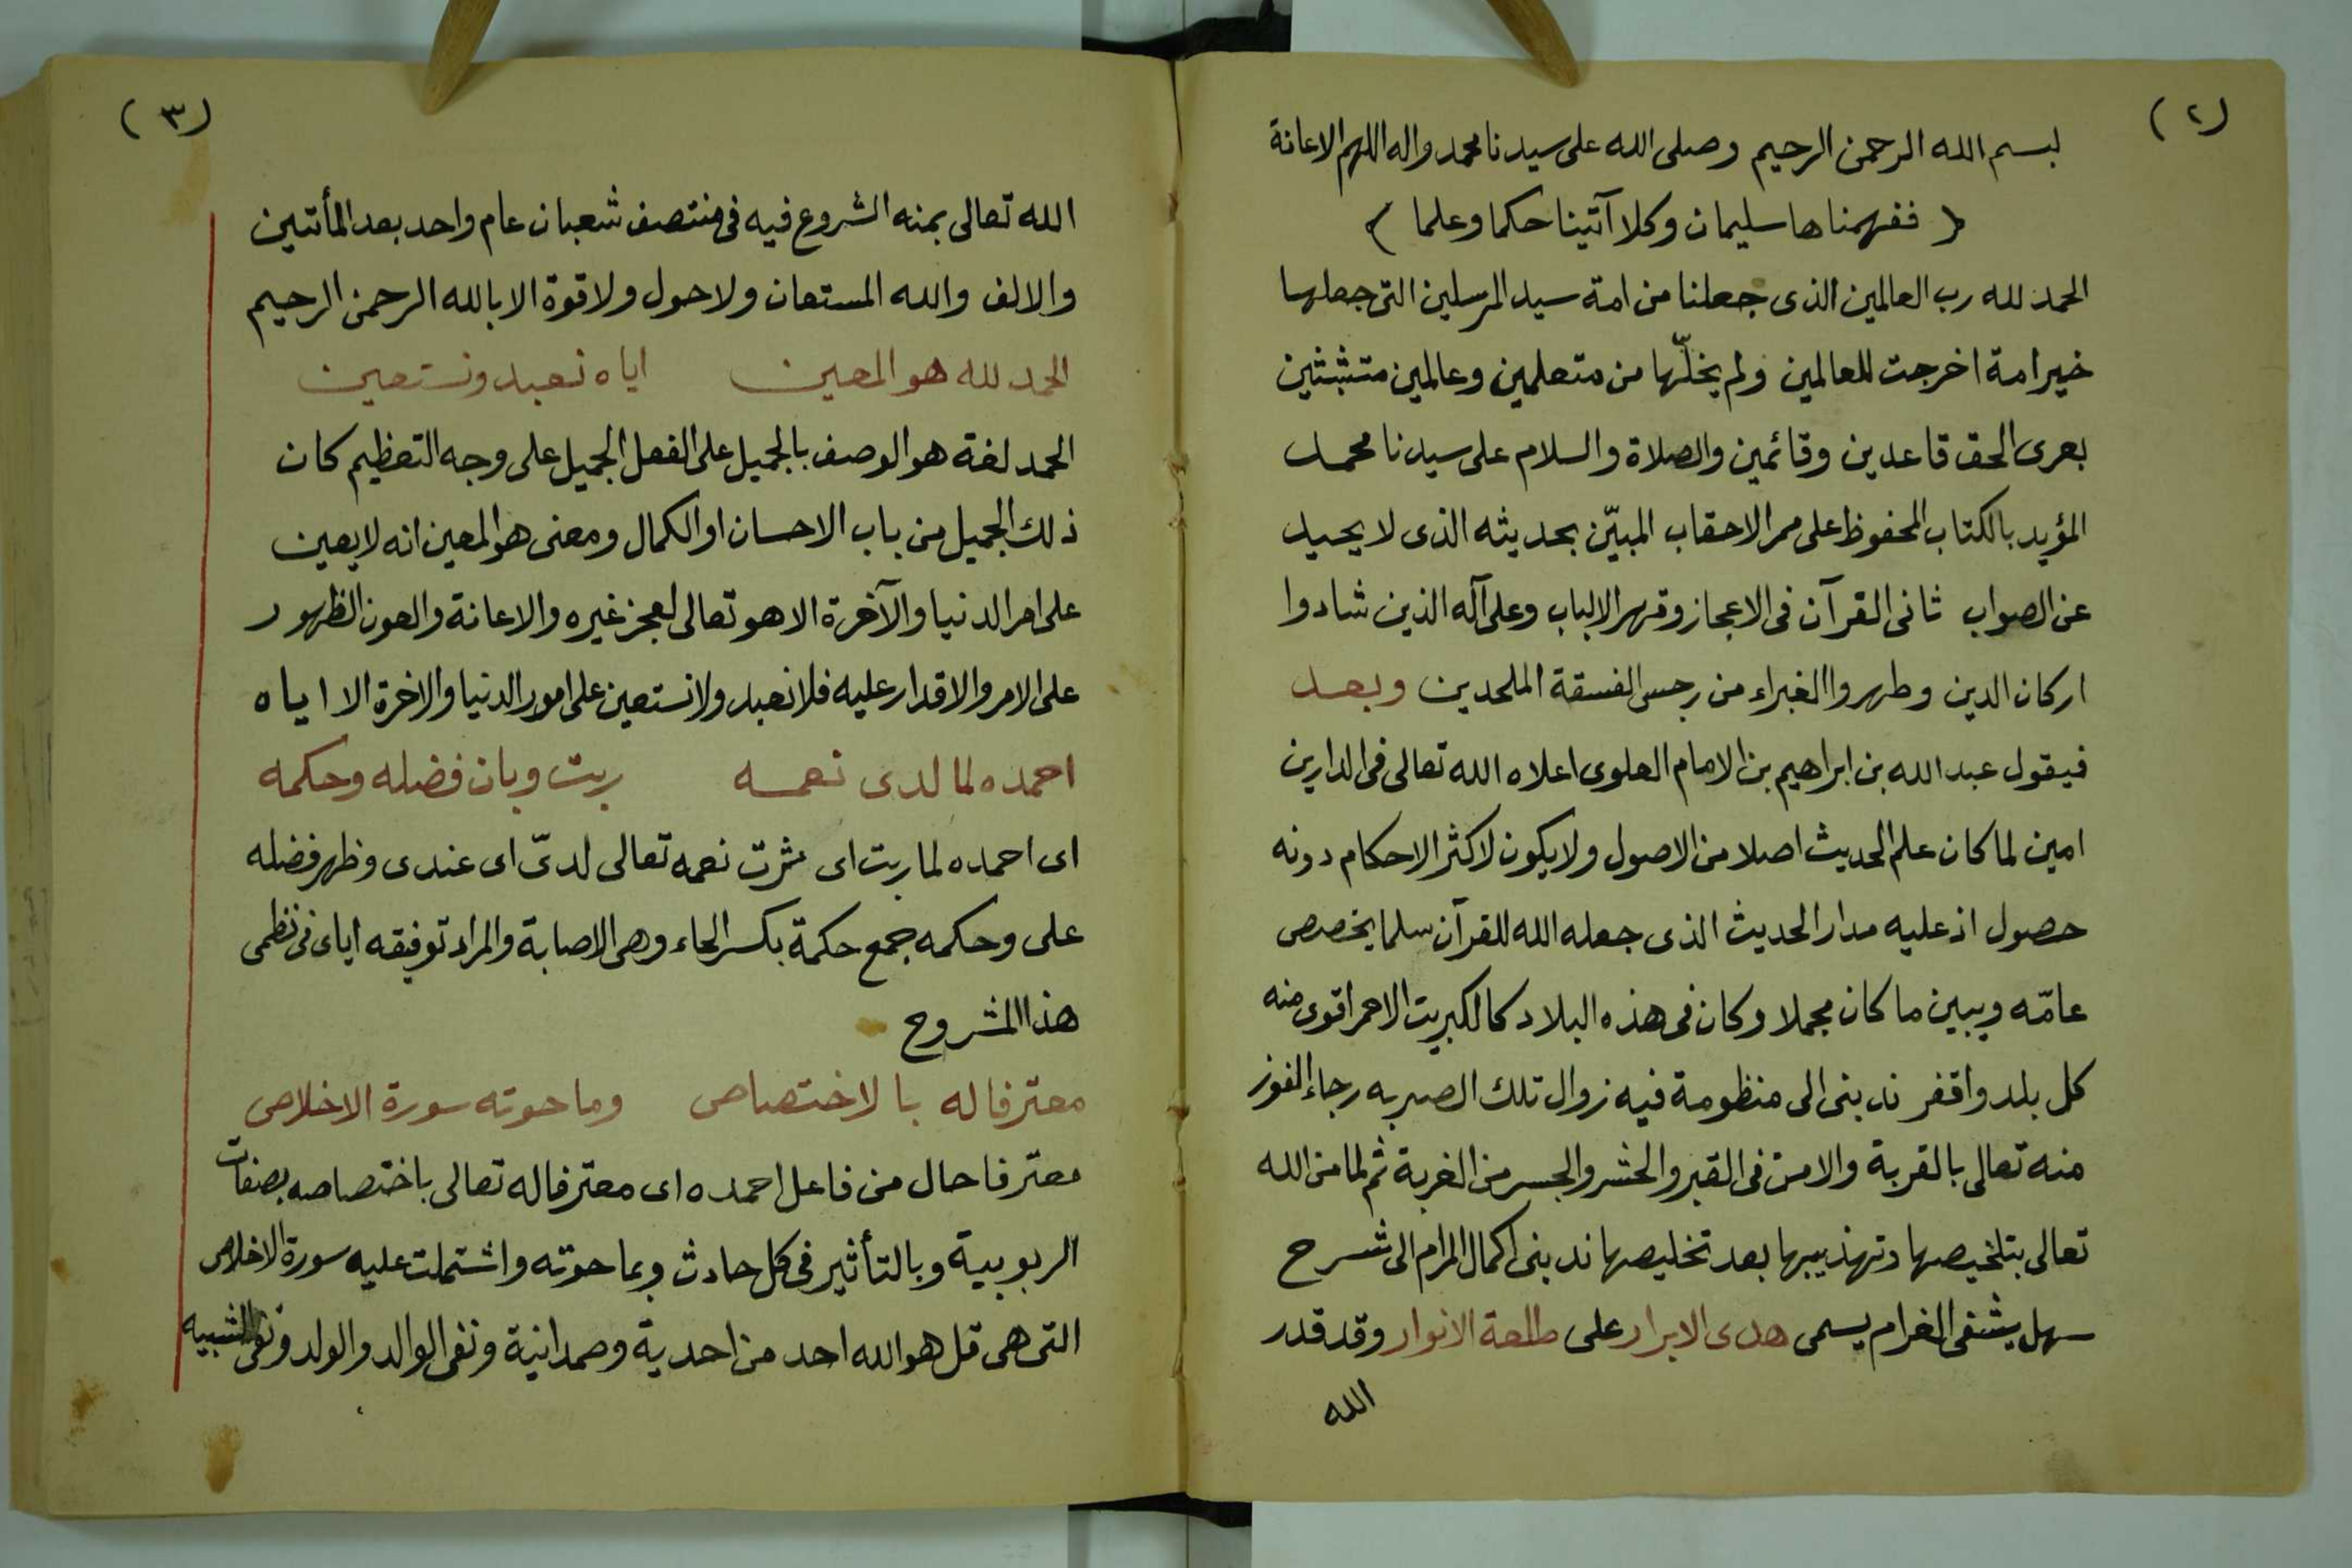 (٢)
بسم الله الرحمن الرحيم وصلى الله على سيدنا محمد واله اللهم الاعانة
( ففهمناها سليمان وكلا آتينا حكما وعلما )
الحمد لله رب العالمين الذى جعلنا من امة سيد المرسلين التى جعلها
خير امة اخرجت للعالمين ولم يخلّها من متعلمين وعالمين متشبثين
بعرى الحق قاعدين وقائمين والصلاة والسلام على سيدنا محمد
المؤيد بالكتاب المحفوظ على ممر الاحقاب المبيّن بحديثه الذى لا يحيد
عن الصواب ثانى القرآن فى الاعجاز وقهر الالباب وعلى آله الذين شادوا
اركان الدين وطهروا الغبراء من رجس الفسقة الملحدين وبعد
فيقول عبد الله بن ابراهيم بن الامام العلوى اعلاه الله تعالى فى الدارين
امين لما كان علم الحديث اصلا من الاصول ولا يكون لاكثر الاحكام دونه
حصول اذ عليه مدار الحديث الذى جعله الله للقرآن سلما يخصص
عامّه ويبين ما كان مجملا وكان فى هذه البلاد كالكبريت الاحمر اقوى منه
كل بلد واقفر ندبنى الى منظومة فيه زوال تلك الصبربه رجاء الفوز
منه تعالى بالقربة والامن فى القبر والحشر والجسر من الغربة ثم لما من الله
تعالى بتلخيصها وتهذيبها بعد تخليصها ندبنى اكمال المرام الى شرح
سهل يشفى الغرام يسمى هدى الابرار على طلعة الانوار وقد قدر
الله
(٣)
الله تعالى بمنه الشروع فيه فى منتصف شعبان عام واحد بعد المأتين
والالف والله المستعان ولا حول ولا قوة الا بالله الرحمن الرحيم
الحمد لله هو المعين اياه نعبد ونستعين
الحمد لغة هو الوصف بالجميل على الفعل الجميل على وجه التعظيم كان
ذلك الجميل من باب الاحسان او الكمال ومعنى هو المعين انه لا يعين
على امر الدنيا والآخرة الا هو تعالى لعجز غيره والاعانة والعون الظهور
على الامر والاقدار عليه فلا نعبد ولا نستعين على امور الدنيا والاخرة الا اياه
احمده لما لدى نعمه ربت وبان فضله وحكمه
اى احمده لما ربت اى عثرت نعمه تعالى لدىّ اى عندى وظهر فضله
على وحكمه جمع حكمة بكسر الحاء وهى الاصابة والمراد توفيقه اياى فى نظمى
هذا المشروح
معترفا له بالاختصاص وما حوته سورة الاخلاص
معترفا حال من فاعل احمده اى معترفا له تعالى باختصاصه بصفات
الربوبية وبالتأثير فى كل حادث وبما حوته واشتملت عليه سورة الاخلاص
التى هى قل هو الله احد من احدية وصمدانية ونفى الوالد والولد ونفى الشبيه